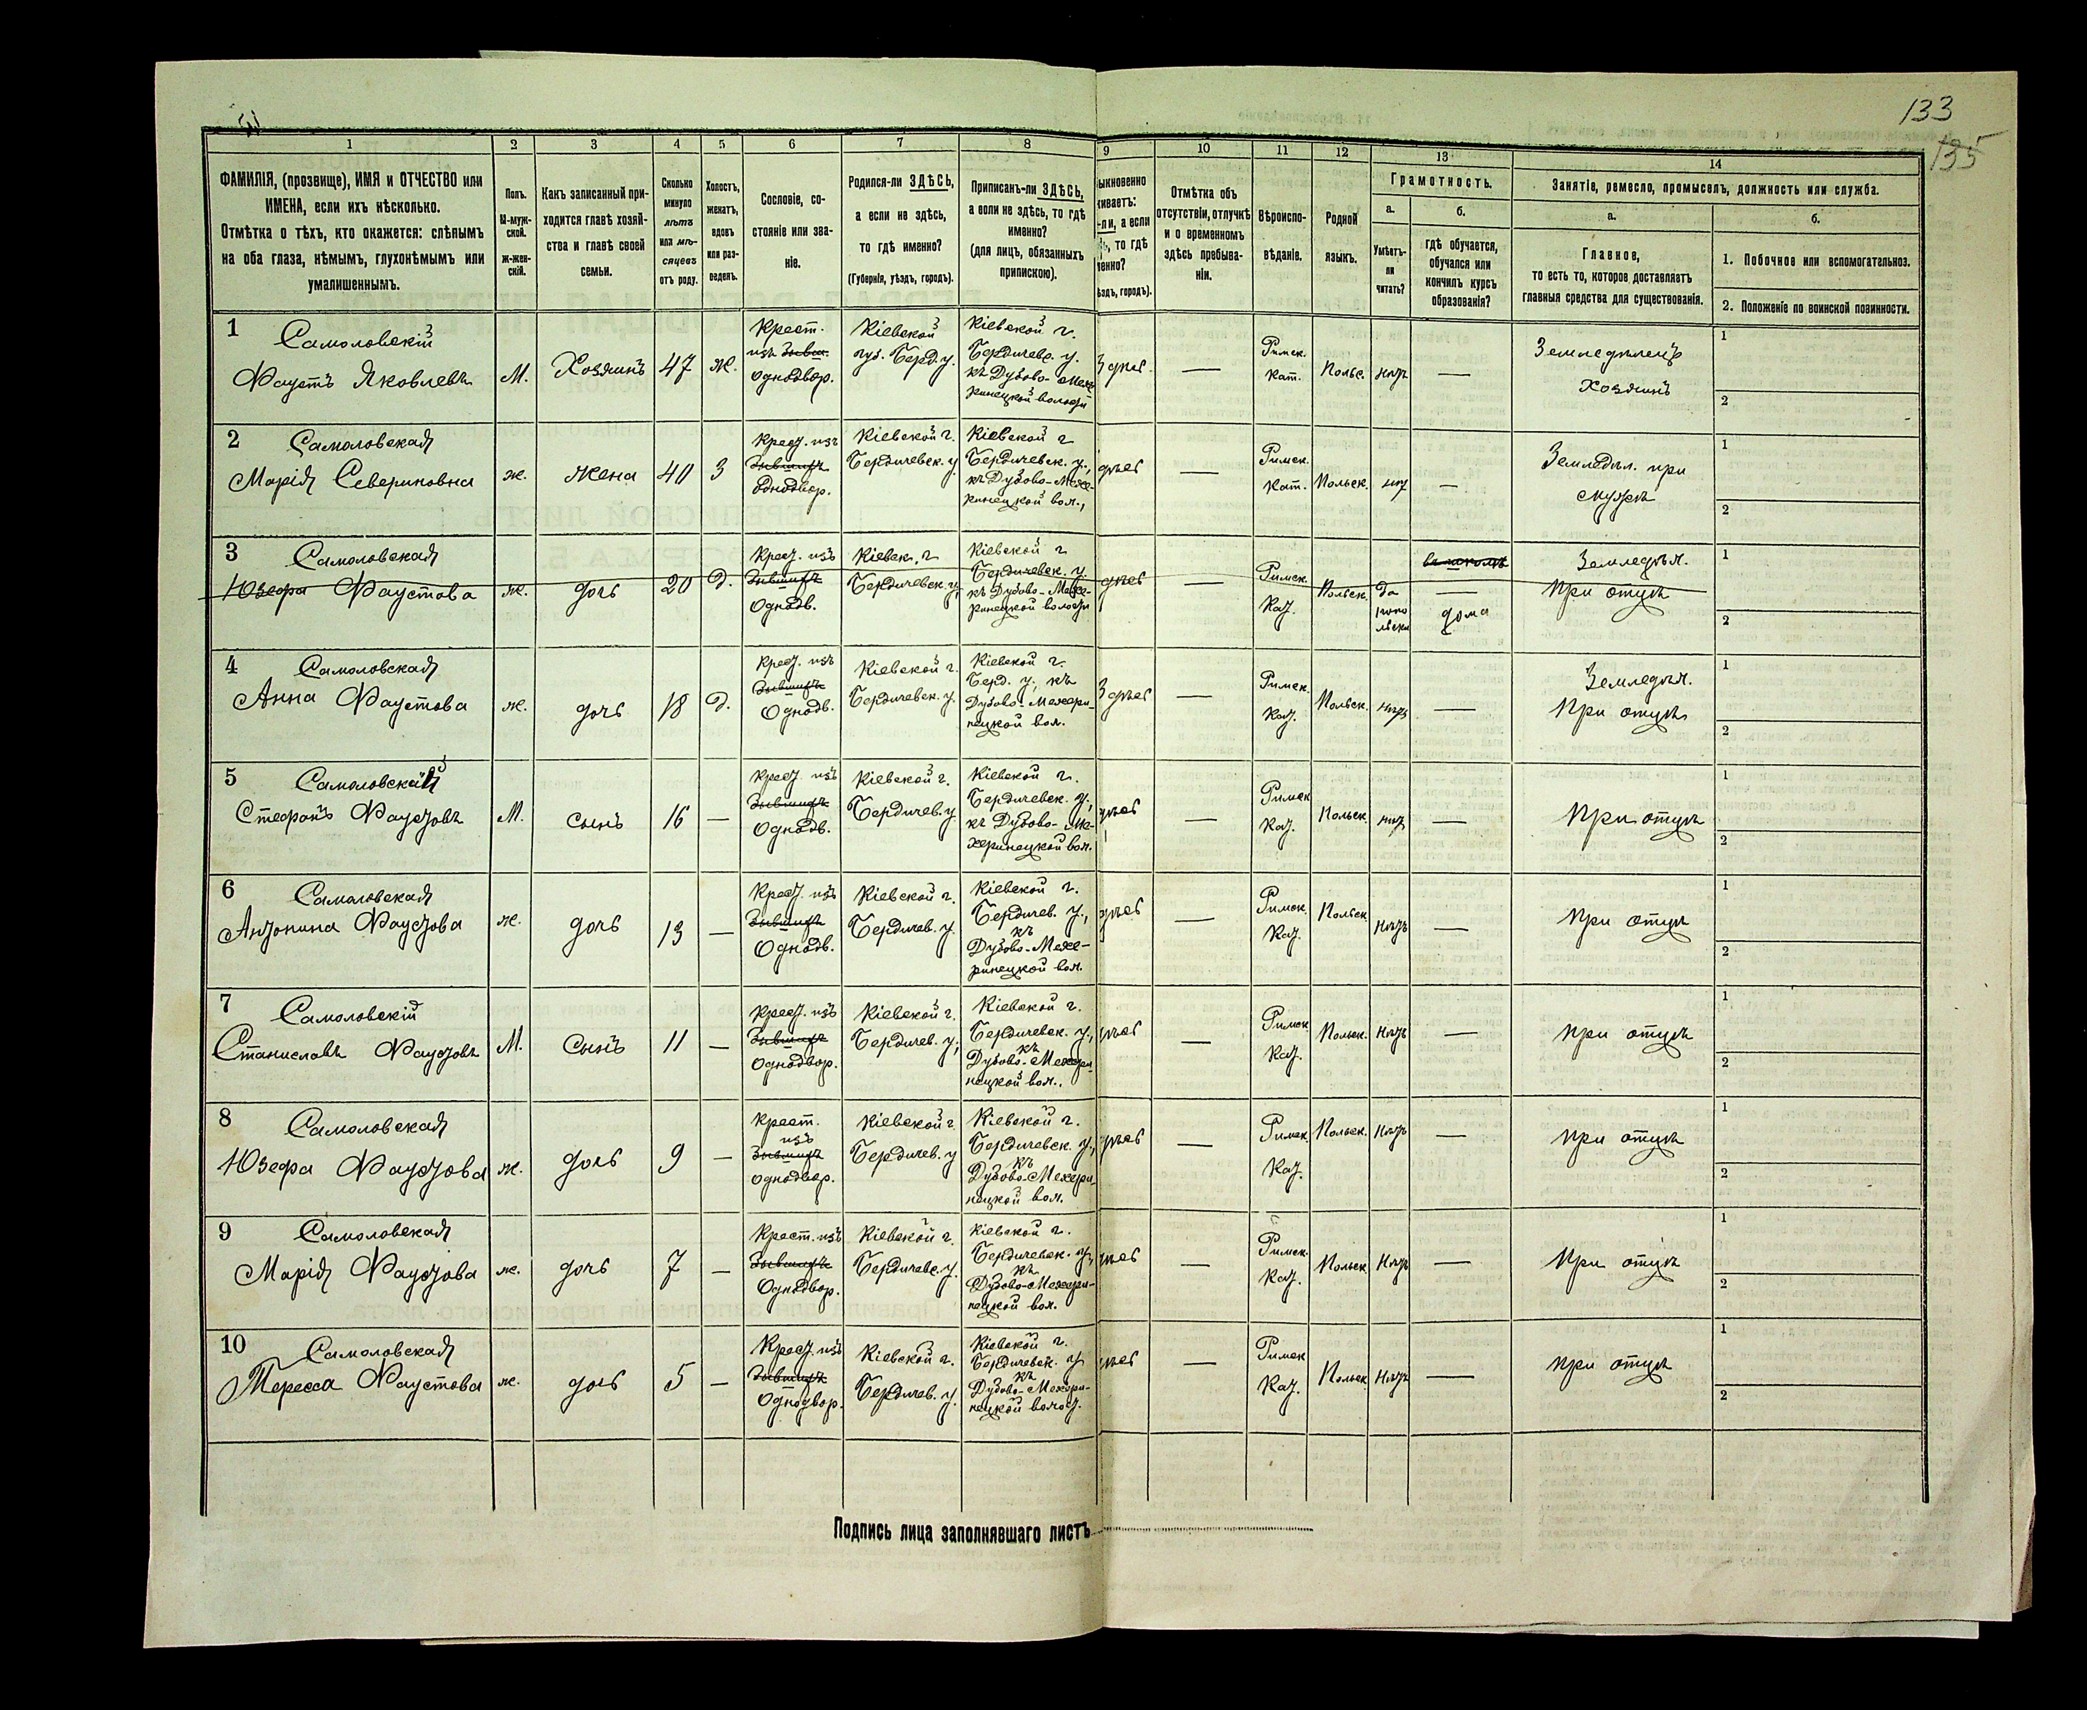 133
135
1 2 3 4 5 6 7 8 9 10 11 12 13 14
ФАМИЛІЯ, (прозвище), ИМЯ и ОТЧЕСТВО или
ИМЕНА, если ихъ нѣсколько.
Отмѣтка о тѣхъ, кто окажется: слѣпымъ
на оба глаза, нѣмымъ, глухонѣмымъ или
умалишеннымъ.
Полъ.
М-муж-
ской.
ж-жен-
скій.
Какъ записанный при-
ходится главѣ хозяй-
ства и главѣ своей
семьи.
Сколько
минуло
лѣтъ
или мѣ-
сяцевъ
отъ роду.
Холостъ,
женатъ,
вдовъ
или раз-
веденъ.
Сословіе, со-
стояніе или зва-
ніе.
Родился-ли ЗДѢСЬ,
а если не здѣсь,
то гдѣ именно?
(Губернія, уѣздъ, городъ).
Приписанъ-ли ЗДѢСЬ,
а если не здѣсь, то гдѣ
именно?
(для лицъ, обязанныхъ
припискою).
ыкновенно
живаетъ:
-ли, а если
ь, то гдѣ
енно?
ѣздъ, городъ).
Отмѣтка объ
отсутствіи, отлучкѣ
и о временномъ
здѣсь пребыва-
ніи.
Вѣроиспо-
вѣданіе.
Родной
языкъ.
Грамотность.
а.
Умѣетъ-
ли
читать?
б.
гдѣ обучается,
обучался или
кончилъ курсъ
образованія?
Занятіе, ремесло, промыселъ, должность или служба.
а.
Главное,
то есть то, которое доставляетъ
главныя средства для существованія.
б.
1. Побочное или вспомогательное.
2. Положеніе по воинской повинности.
1
Самоловскій
Фаустъ Яковлевъ
М.
Хозяинъ
47
ж.
Крест.
изъ бывш.
однодвор.
Кіевской
губ. Берд. у.
Кіевской г.
Бердичевс. у.
къ Дубово-Меже-
ринецкой волости
Здѣсь.
—
Римск.
Кат.
Польс.
нѣтъ
—
Земледѣлецъ
Хозяинъ
1
2
2
Самоловская
Марія Севериновна
ж.
жена
40
З
Крест. изъ
бывшихъ
однодвор.
Кіевской г.
Бердичевск. у.
Кіевской г
Бердичевск. у.,
къ Дубово-Меже-
ринецкой вол.,
здѣсь
—
Римск.
Кат.
Польск.
нѣт
—
Земледѣл. при
мужѣ
1
2
3
Самоловская
Юзефа Фаустова
ж.
дочь
20
Д.
Крест. изъ
бывшихъ
Однодв.
Кіевск. г
Бердичевск. у,
Кіевской г
Бердичевск. у.
къ Дубово-Меже-
ринецкой волости
здѣсь
—
Римск.
Кат.
Польск.
Да
по по
льски
—
дома
Земледѣл.
При отцѣ
1
2
4
Самоловская
Анна Фаустова
ж.
дочь
18
Д.
Крест. изъ
бывшихъ
Однодв.
Кіевской г.
Бердичевск. у.
Кіевской г.
Берд. у., къ
Дубово-Межери-
нецкой вол.
Здѣсь
—
Римск.
Кат.
Польск.
нѣтъ
—
Земледѣл.
При отцѣ
1
2
5
Самоловскій
Стефанъ Фаустовъ
М.
сынъ
16
—
Крест. изъ
бывшихъ
Однодв.
Кіевской г.
Бердичев. у.
Кіевской г.
Бердичевск. у.,
къ Дубово-Ме-
жеринецкой вол.
здѣсь
—
Римск
Кат.
Польск
нѣтъ
—
При отцѣ
1
2
6
Самоловская
Антонина Фаустова
ж.
дочь
13
—
Крест. изъ
бывшихъ
Однодв.
Кіевской г.
Бердичев. у.
Кіевской г.
Бердичев. у.,
къ
Дубово-Меже-
ринецкой вол.
здѣсь
—
Римск.
Кат.
Польск
Нѣтъ
—
При отцѣ
1
2
7
Самоловскій
Станиславъ Фаустовъ
М.
Сынъ
11
—
Крест. изъ
бывшихъ
Однодвор.
Кіевской г.
Бердичев. у,
Кіевской г.
Бердичевск. у.,
къ
Дубово-Межери-
нецкой вол.,
здѣсь
—
Римск
Кат.
Польск.
Нѣтъ
—
при отцѣ
1
2
8
Самоловская
Юзефа Фаустова
ж.
дочь
9
—
крест.
изъ
бывшихъ
однодвор.
Кіевской г
Бердичев. у
Кіевской г.
Бердичевск. у.,
къ
Дубово-Межери-
нецкой вол.
здѣсь
—
Римск.
Кат.
Польск.
Нѣтъ
—
при отцѣ
1
2
9
Самоловская
Марія Фаустова
ж.
дочь
7
—
Крест. изъ
бывшихъ
Однодвор.
Кіевской г.
Бердичевс. у.
Кіевской г.
Бердичевск. у,
къ
Дубово-Межери-
нецкой вол.
здѣсь
—
Римск.
Кат.
Польск
Нѣтъ
—
При отцѣ
1
2
10
Самоловская
Тересса Фаустова
ж.
дочь
5
—
Крест. изъ
бывшихъ
Однодвор.
Кіевской г.
Бердичев. у.
Кіевской г.
Бердичевск. у
къ
Дубово-Межери-
нецкой волост.
здѣсь
—
Римск
Кат.
Польск
Нѣтъ
—
при отцѣ
1
2
Подпись лица заполнявшаго листъ